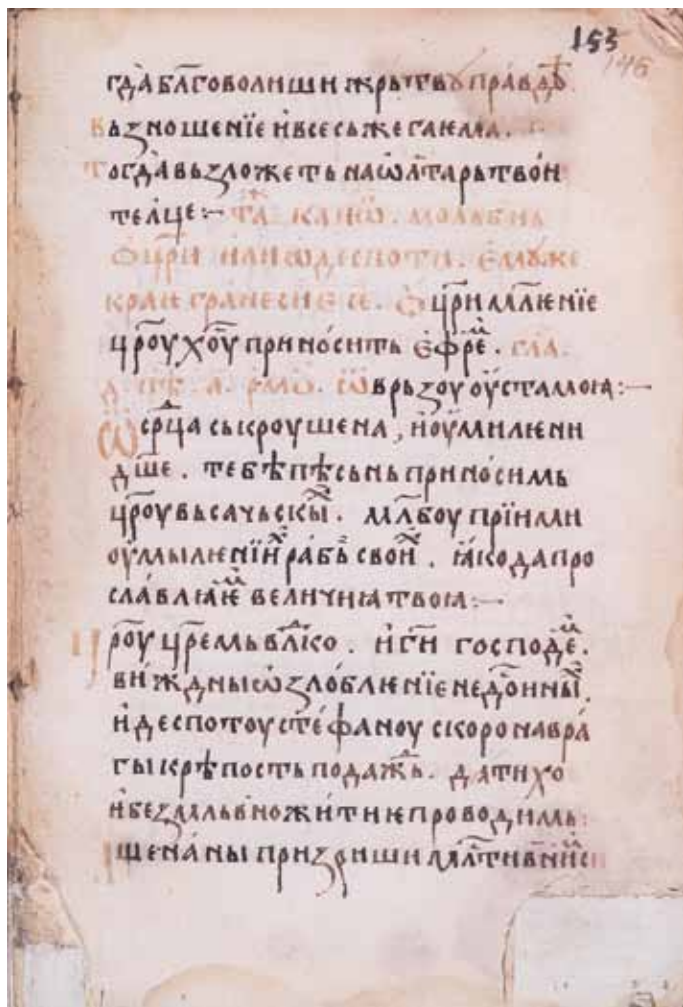 153
146
гда бл҃говолиши жрьтвꙋ правдѣ
вьзношенїе и всесьжегаемаа.
тогда вьзложеть на ѡлтарь твои
телце:~ та҃ кано҃ѡ. мольбнь
ѡ цр҃и или ѡ деспоти. емꙋже
краигранесие се. ѡ цр҃и мл҃ѥнїе
цр҃оу хо҃у приносить ефре҃м. гла.
д. пѣ. а. рмо҃. ѿврьзоу оуста моꙗ:~
Ѿ срⷣца ськроушена, и оумилѥни
дш҃е. тебѣ пѣсьнь приносимь
цр҃оу вьсачьскыⷯ. мл҃боу прїими
оумылѥнїиⷯ рабь своиⷯ. ꙗко да про
славлꙗѥⷨ величиꙗ твоꙗ:~
Цр҃оу цр҃емь влⷣко. и г҃и господеⷨ.
виждь ны ѡзлоблѥнїе недⷭоинныⷯ.
и деспотоу стефаноу скоро на вра
гы крѣпость подажⷣь. да тихо
и безмльвно житиѥ проводимь:
ще на ны призриши млⷭтивнїиⷨ си